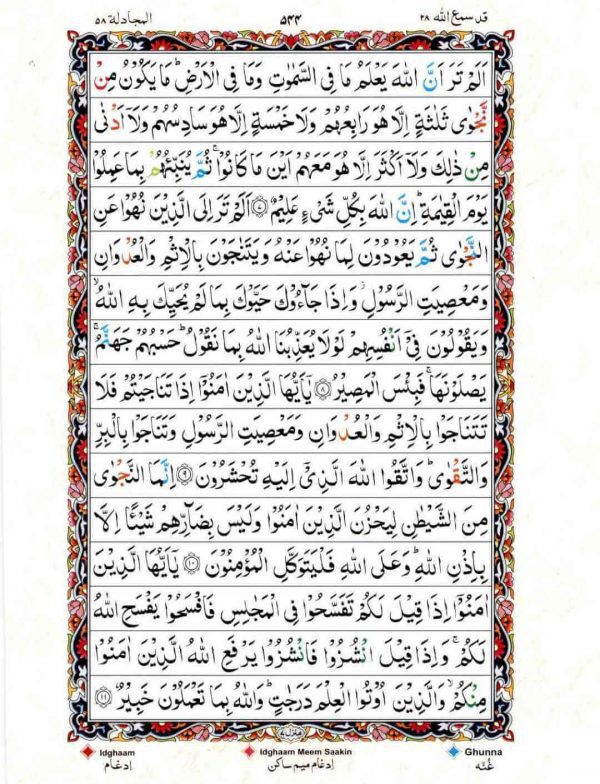 قد سمع الله ٢٨ ٥٤٤ المجادلة ٥٨
اَلَمْ تَرَ اَنَّ اللّٰهَ يَعْلَمُ مَا فِى السَّمٰوٰتِ وَمَا فِى الْاَرْضِ ؕ مَا يَكُوْنُ مِنْ
نَّجْوٰى ثَلٰثَةٍ اِلَّا هُوَ رَابِعُهُمْ وَلَا خَمْسَةٍ اِلَّا هُوَ سَادِسُهُمْ وَلَاۤ اَدْنٰى
مِنْ ذٰلِكَ وَلَاۤ اَكْثَرَ اِلَّا هُوَ مَعَهُمْ اَيْنَ مَا كَانُوْا ۚ ثُمَّ يُنَبِّئُهُمْ بِمَا عَمِلُوْا
يَوْمَ الْقِيٰمَةِ ؕ اِنَّ اللّٰهَ بِكُلِّ شَىْءٍ عَلِيْمٌ ۝٧ اَلَمْ تَرَ اِلَى الَّذِيْنَ نُهُوْا عَنِ
النَّجْوٰى ثُمَّ يَعُوْدُوْنَ لِمَا نُهُوْا عَنْهُ وَيَتَنٰجَوْنَ بِالْاِثْمِ وَالْعُدْوَانِ
وَمَعْصِيَتِ الرَّسُوْلِ ؗ وَاِذَا جَآءُوْكَ حَيَّوْكَ بِمَا لَمْ يُحَيِّكَ بِهِ اللّٰهُ ۙ
وَيَقُوْلُوْنَ فِىْۤ اَنْفُسِهِمْ لَوْلَا يُعَذِّبُنَا اللّٰهُ بِمَا نَقُوْلُ ؕ حَسْبُهُمْ جَهَنَّمُ ۚ
يَصْلَوْنَهَا ۚ فَبِئْسَ الْمَصِيْرُ ۝٨ يٰۤاَيُّهَا الَّذِيْنَ اٰمَنُوْۤا اِذَا تَنَاجَيْتُمْ فَلَا
تَتَنَاجَوْا بِالْاِثْمِ وَالْعُدْوَانِ وَمَعْصِيَتِ الرَّسُوْلِ وَتَنَاجَوْا بِالْبِرِّ
وَالتَّقْوٰى ؕ وَاتَّقُوا اللّٰهَ الَّذِىْۤ اِلَيْهِ تُحْشَرُوْنَ ۝٩ اِنَّمَا النَّجْوٰى
مِنَ الشَّيْطٰنِ لِيَحْزُنَ الَّذِيْنَ اٰمَنُوْا وَلَيْسَ بِضَآرِّهِمْ شَيْـًٔا اِلَّا
بِاِذْنِ اللّٰهِ ؕ وَعَلَى اللّٰهِ فَلْيَتَوَكَّلِ الْمُؤْمِنُوْنَ ۝١٠ يٰۤاَيُّهَا الَّذِيْنَ
اٰمَنُوْۤا اِذَا قِيْلَ لَكُمْ تَفَسَّحُوْا فِى الْمَجٰلِسِ فَافْسَحُوْا يَفْسَحِ اللّٰهُ
لَكُمْ ۚ وَاِذَا قِيْلَ انْشُزُوْا فَانْشُزُوْا يَرْفَعِ اللّٰهُ الَّذِيْنَ اٰمَنُوْا
مِنْكُمْ ۙ وَالَّذِيْنَ اُوْتُوا الْعِلْمَ دَرَجٰتٍ ؕ وَاللّٰهُ بِمَا تَعْمَلُوْنَ خَبِيْرٌ ۝١١
منزل ٧
Idghaam Idghaam Meem Saakin Ghunna
ادغام ادغام میم ساکن غُنّه